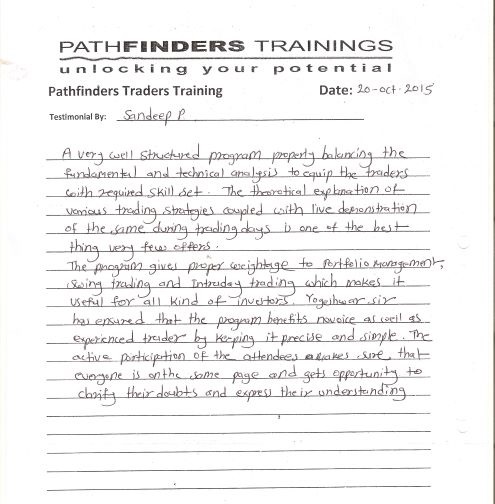 PATHFINDERS TRAININGS
unlocking your potential
Pathfinders Traders Training Date: 20-oct-2015
Testimonial By: Sandeep P.
A very well structured program properly balancing the
fundamental and technical analysis to equip the traders
with required skill set. The theoretical explanation of
various trading strategies coupled with live demonstration
of the same during trading days is one of the best
thing very few offers.
The program gives proper weightage to Portfolio Management,
Swing trading and Intraday trading which makes it
useful for all kind of investors. Yogeshwar sir
has ensured that the program benefits novoice as well as
experienced trader by keeping it precise and simple. The
active participation of the attendees makes sure that
everyone is on the same page and gets opportunity to
clarify their doubts and express their understanding